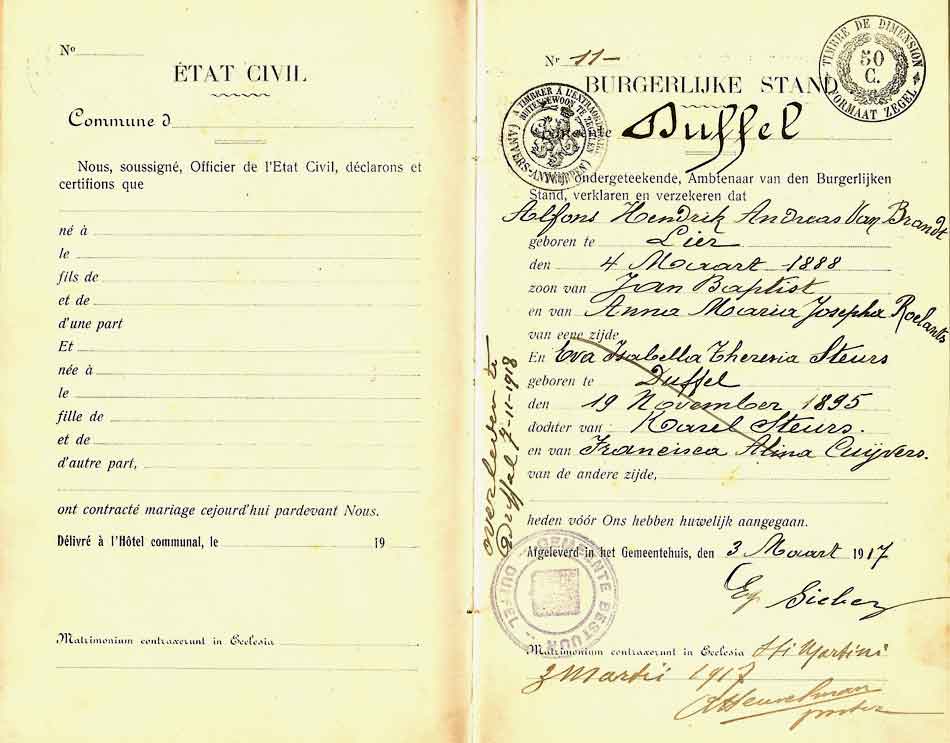 Nº
ÉTAT CIVIL
Commune d
Nous, soussigné, Officier de l'Etat Civil, déclarons et
certifions que
né à
le
fils de
et de
d'une part
Et
née à
le
fille de
et de
d'autre part,
ont contracté mariage cejourd'hui pardevant Nous.
Délivré à l'Hôtel communal, le 19
Matrimonium contraxerunt in Ecclesia
Nr 11-
BURGERLIJKE STAND
TIMBRE DE DIMENSION
50
C.
FORMAAT ZEGEL
A TIMBRER A L'EXTRAORDINAIRE
BUITENGEWOON TE ZEGELEN
(ANVERS-ANTWERPEN)
Gemeente Duffel
Wij ondergeteekende, Ambtenaar van den Burgerlijken
Stand, verklaren en verzekeren dat
Alfons Hendrik Andreas Van Brandt
geboren te Lier
den 4 Maart 1888
zoon van Jan Baptist
en van Anna Maria Josepha Roelants
van eene zijde
En Eva Isabella Theresia Steurs
geboren te Duffel
den 19 November 1895
dochter van Karel Steurs.
en van Francisca Alina Cuijvers.
van de andere zijde,
heden vóór Ons hebben huwelijk aangegaan.
Afgeleverd in het Gemeentehuis, den 3 Maart 1917
GEMEENTE BESTUUR
DUFFEL
Matrimonium contraxerunt in Ecclesia Sti Martini
3 Martii 1917
overleden te
Duffel 7-11-1918